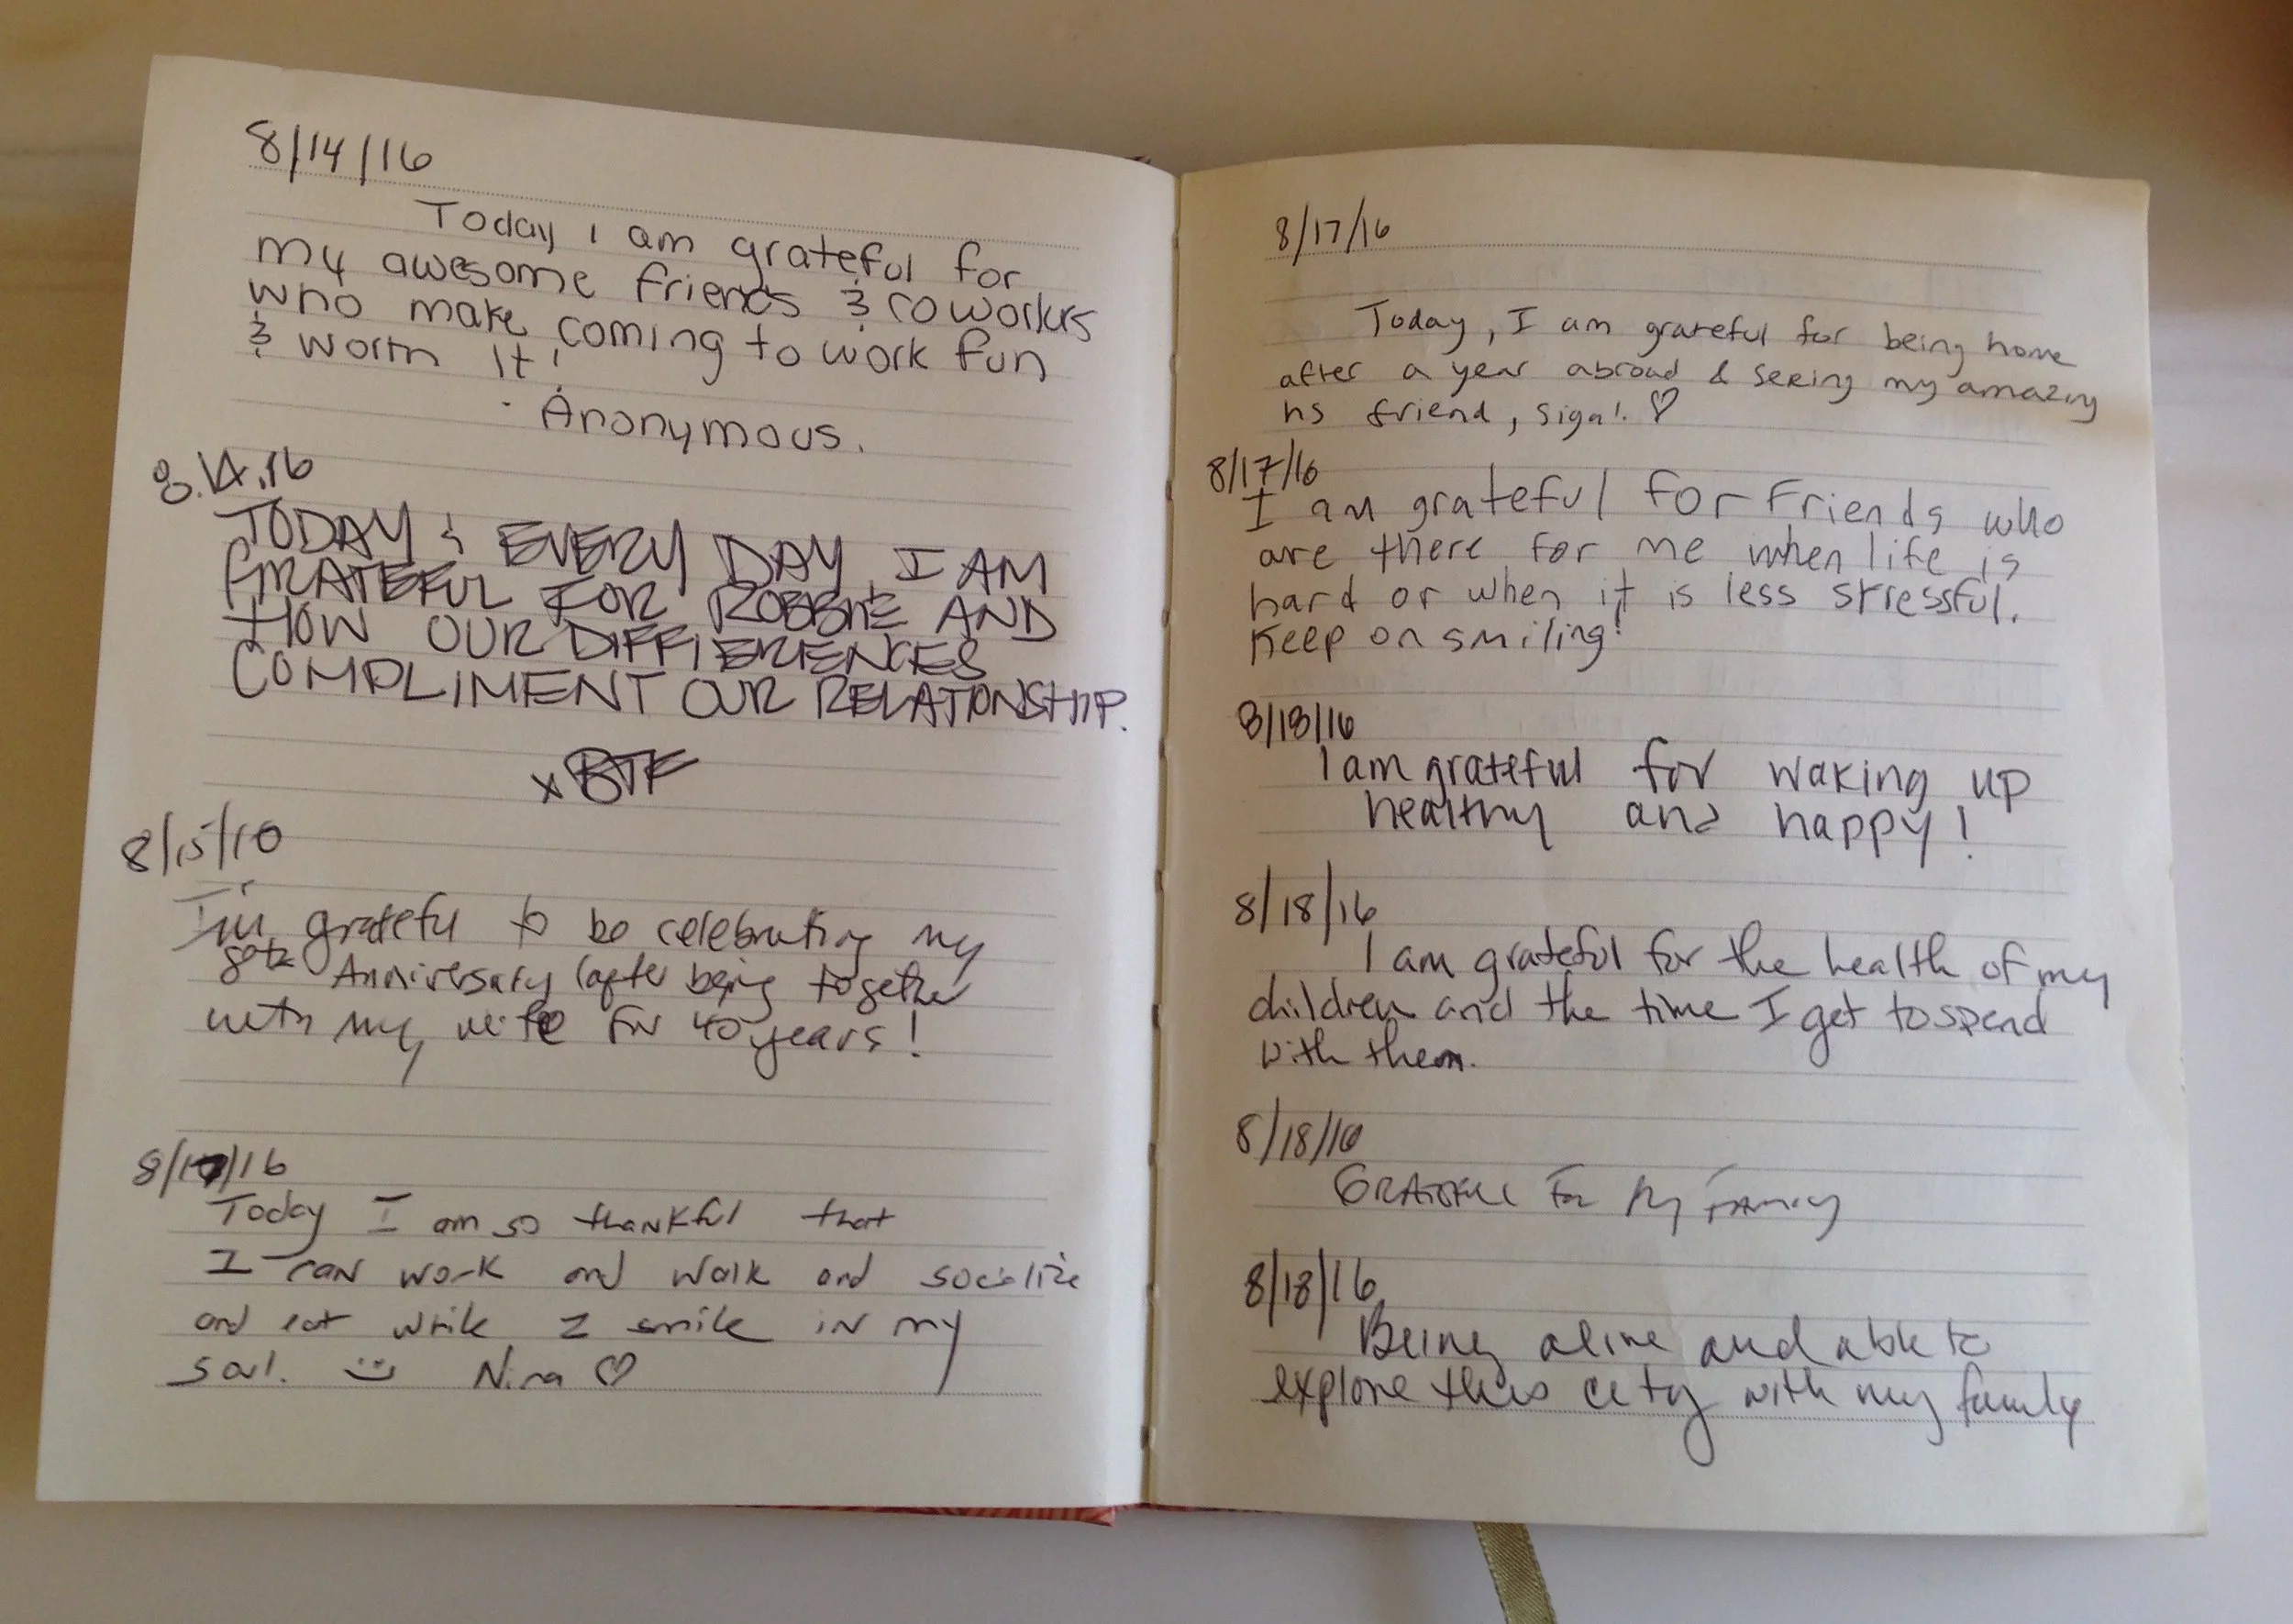 8/14/16
Today I am grateful for
my awesome friends & coworkers
who make coming to work fun
& worth it!
- Anonymous.
8.14.16
TODAY & EVERY DAY, I AM
GRATEFUL FOR ROBBIE AND
HOW OUR DIFFIERENCES
COMPLIMENT OUR RELATIONSHIP.
x BTF
8/15/16
I'm grateful to be celebrating my
Anniversary (after being together
with my wife for 40 years!
8/17/16
Today I am so thankful that
I can work and walk and socialize
and eat while I smile in my
soul. :) Nina ♡
8/17/16
Today, I am grateful for being home
after a year abroad & seeing my amazing
hs friend, Sigal. ♡
8/17/16
I am grateful for Friends who
are there for me when life is
hard or when it is less stressful.
Keep on smiling!
8/18/16
I am grateful for waking up
healthy and happy!
8/18/16
I am grateful for the health of my
children and the time I get to spend
with them.
8/18/16
GRATEFUL FOR MY FAMILY
8/18/16
Being alive and able to
explore this city with my family